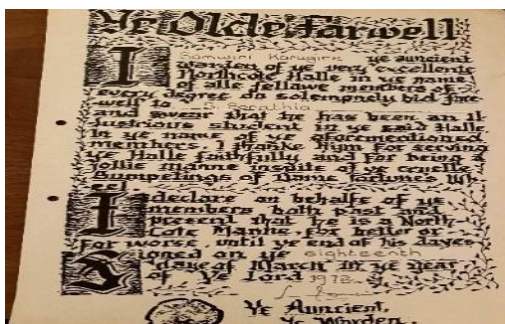 Ye Olde Farwell
I Samwiri Karugire ye auncient
warden of ye very excellente
Northcote Halle in ye name
of alle fellawe members of
every degree do solempnely bid fare
well to S. Serathia
and swear that he has been an il
lustrious student in ye said Halle.
In ye name of ye aforementioned
members, I thanke Him for serving
ye Halle faithfully and for being a
jollie manne inspite of ye cruelle
Bumpetings of Dame fortune's Wh
eel.
I declare on behalfe of ye
members both past and
present that he is a North-
Cote Manne, for better or
for worse, until ye end of his dayes
Signed on ye eighteenth
daye of March in ye year
of Ye Lord 1973.
Ye Auncient,
Ye Warden.